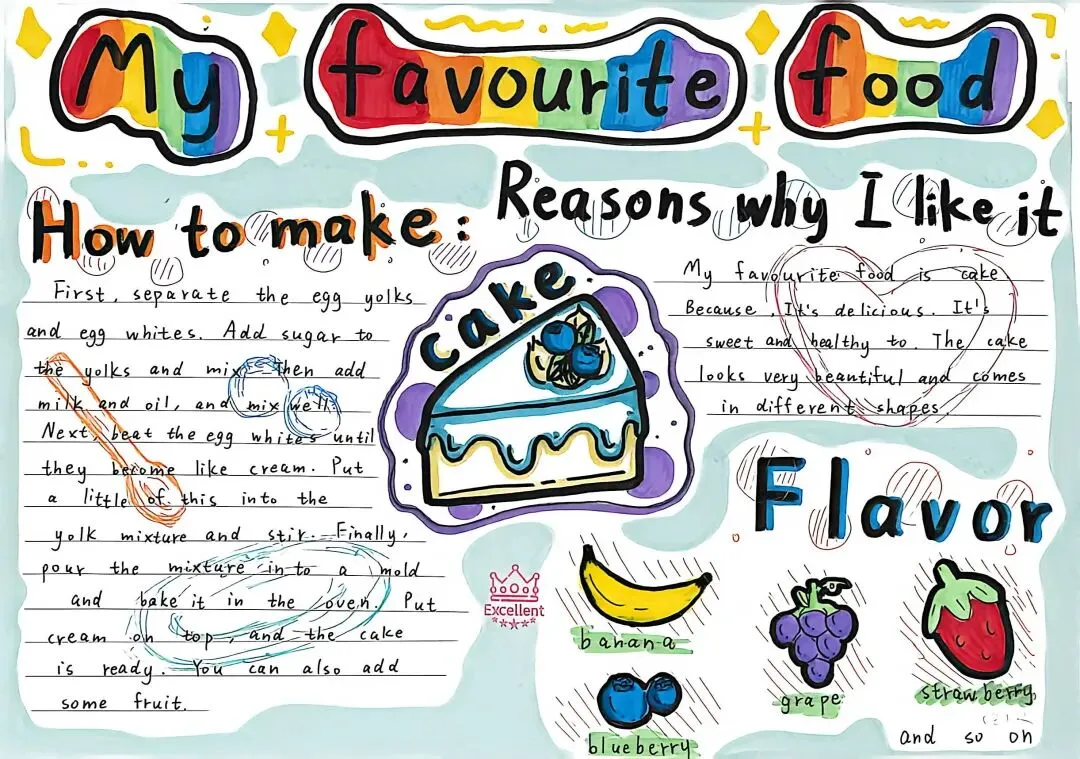 My favourite food
How to make:
First, separate the egg yolks
and egg whites. Add sugar to
the yolks and mix. Then add
milk and oil, and mix well.
Next, beat the egg whites until
they become like cream. Put
a little of this into the
yolk mixture and stir. Finally,
pour the mixture into a mold
and bake it in the oven. Put
cream on top, and the cake
is ready. You can also add
some fruit.
cake
Reasons why I like it
My favourite food is cake
Because, It's delicious. It's
sweet and healthy to. The cake
looks very beautiful and comes
in different shapes.
Flavor
banana
grape
strawberry
blueberry
and so on
Excellent